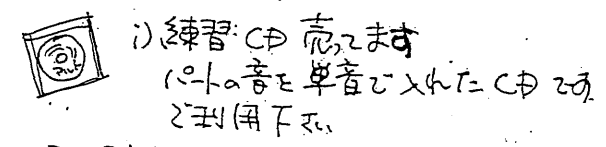 i) 練習CD 売ってます
パートの音を単音で入れたCDです。
ご利用下さい